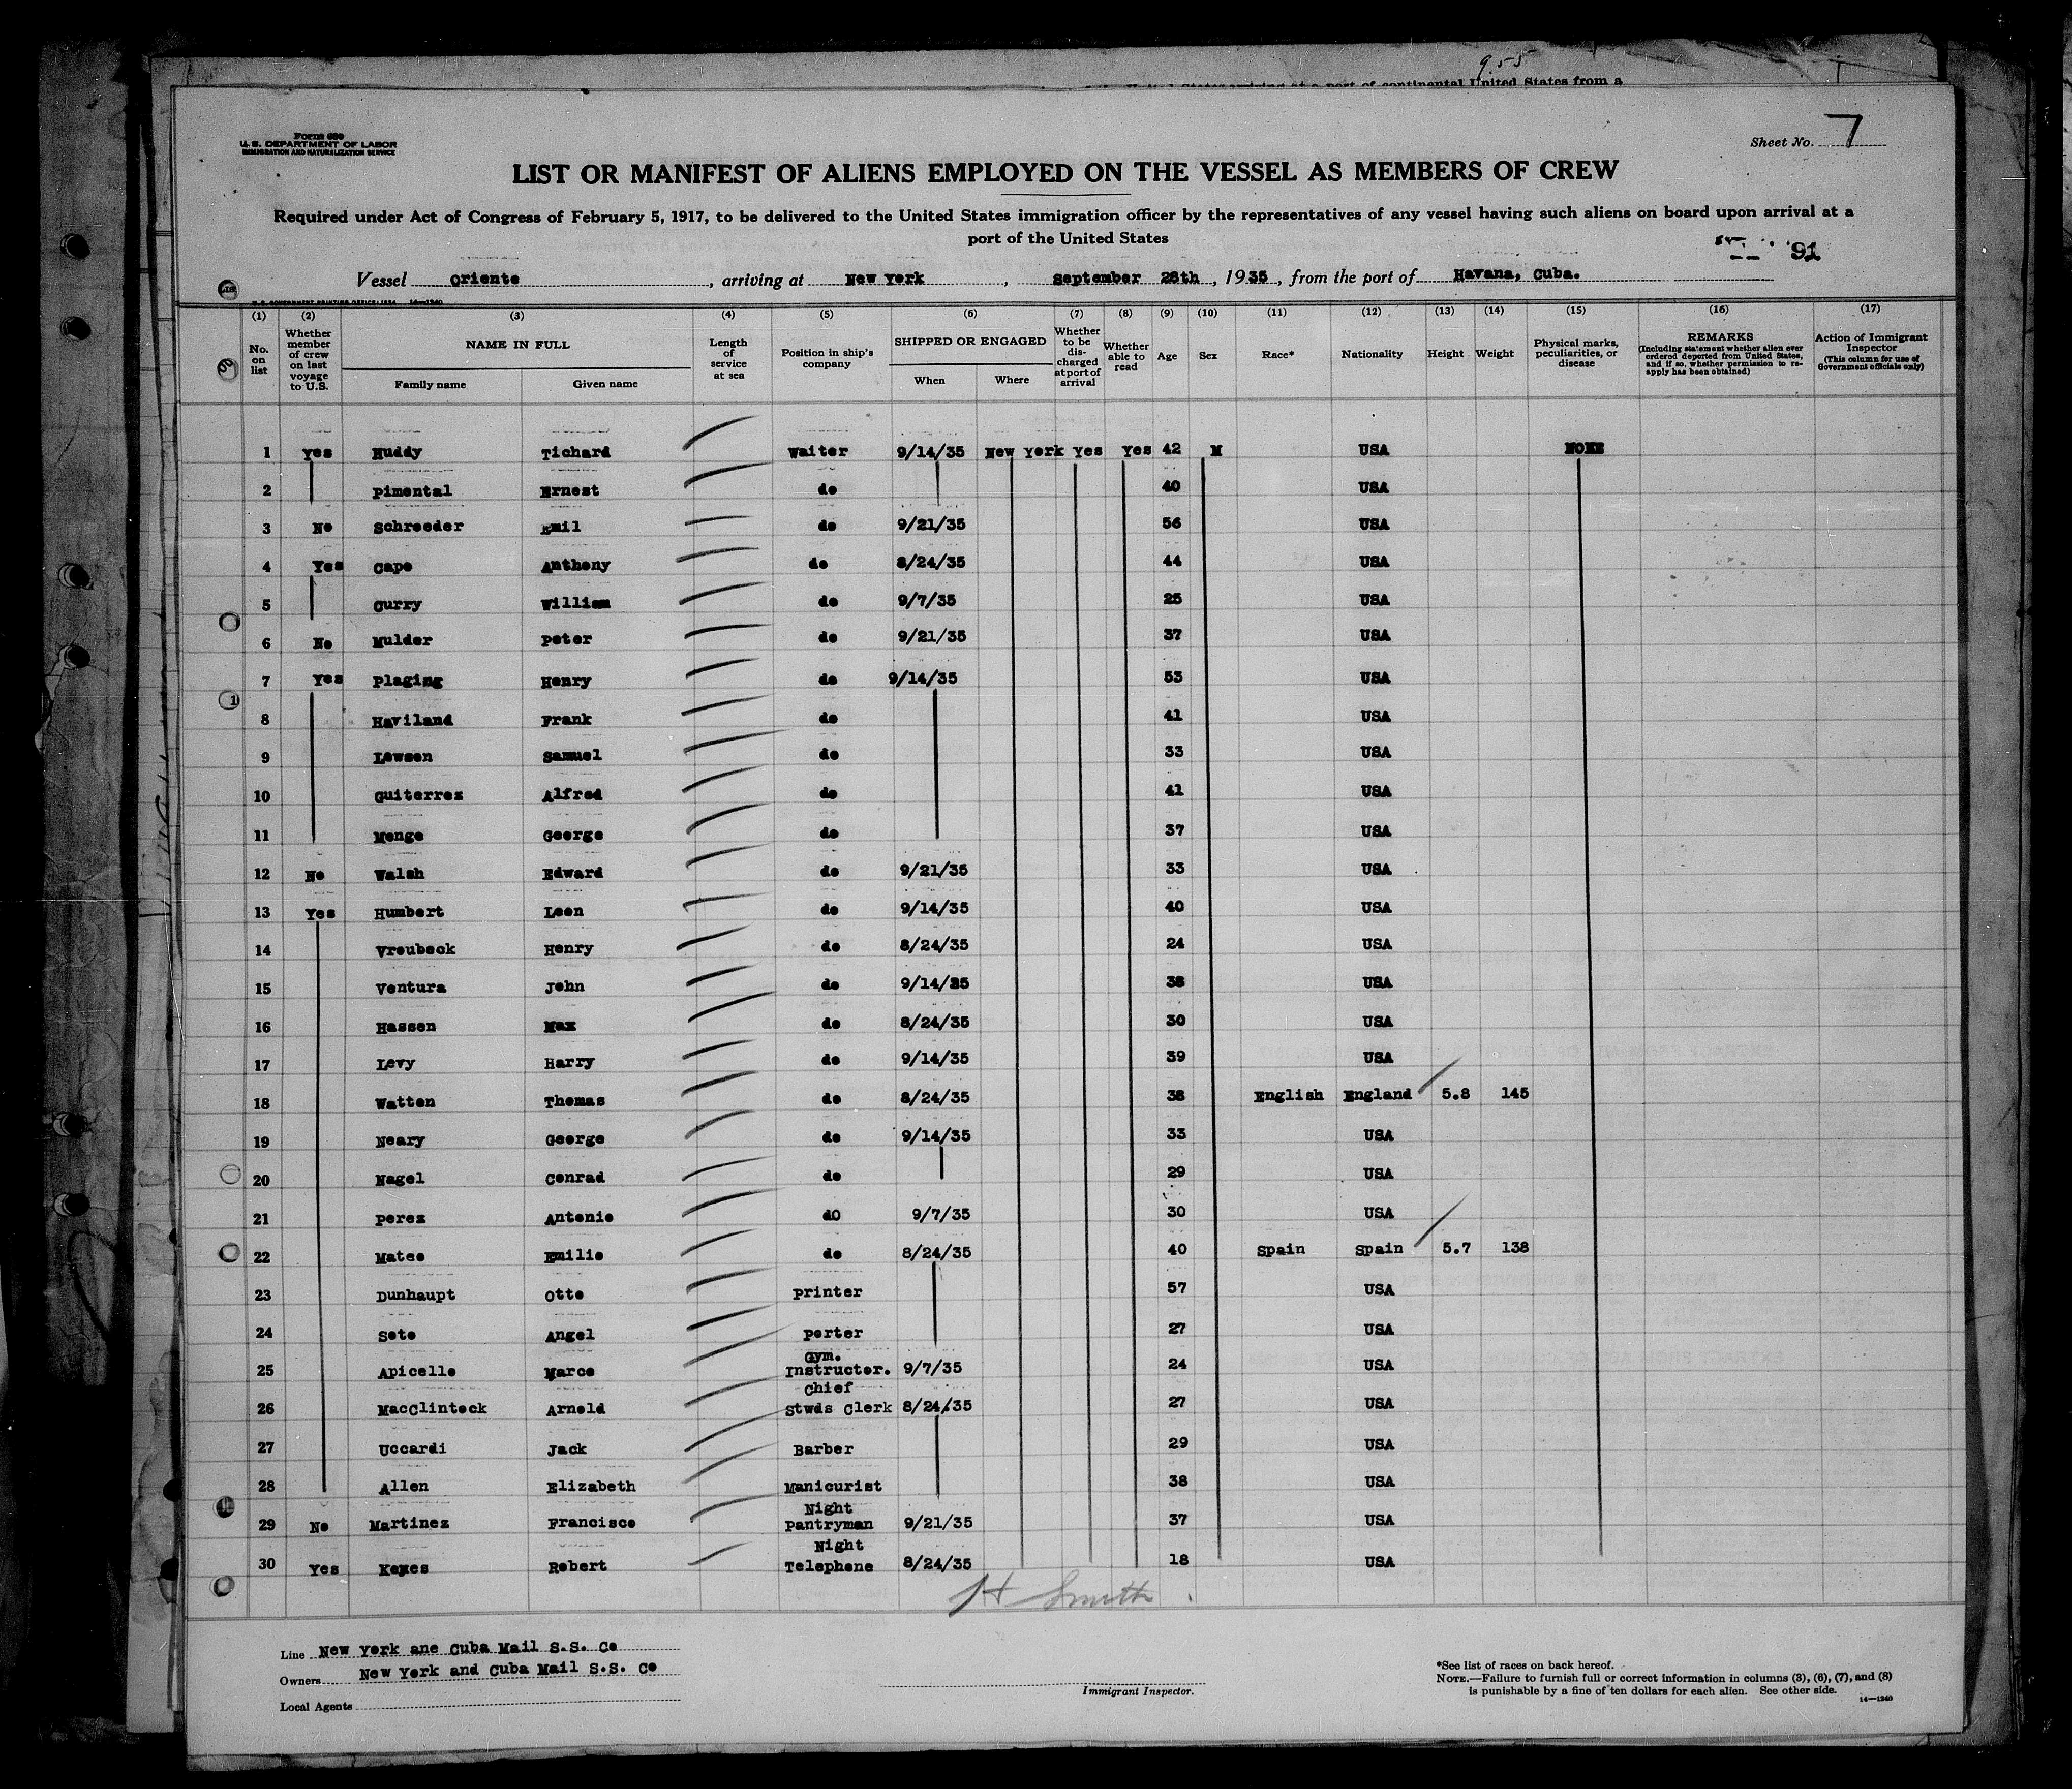 955
United States arriving at a port of continental United States from a
Form 680
U. S. DEPARTMENT OF LABOR
IMMIGRATION AND NATURALIZATION SERVICE
Sheet No. 7
LIST OR MANIFEST OF ALIENS EMPLOYED ON THE VESSEL AS MEMBERS OF CREW
Required under Act of Congress of February 5, 1917, to be delivered to the United States immigration officer by the representatives of any vessel having such aliens on board upon arrival at a
port of the United States
91
Vessel Oriente, arriving at New York, September 28th, 1935, from the port of Havana, Cuba.
U. S. GOVERNMENT PRINTING OFFICE: 1934 14—1240
(1) (2) (3) (4) (5) (6) (7) (8) (9) (10) (11) (12) (13) (14) (15) (16) (17)
No. on list Whether member of crew on last voyage to U.S. NAME IN FULL Family name Given name Length of service at sea Position in ship's company SHIPPED OR ENGAGED When Where Whether to be discharged at port of arrival Whether able to read Age Sex Race* Nationality Height Weight Physical marks, peculiarities, or disease REMARKS (Including statement whether alien ever ordered deported from United States, and if so, whether permission to reapply has been obtained) Action of Immigrant Inspector (This column for use of Government officials only)
1 Yes Huddy Tichard Waiter 9/14/35 New York Yes Yes 42 M USA NONE
2 Pimental Ernest do 40 USA
3 No Schroeder Emil do 9/21/35 56 USA
4 Yes Cape Anthony do 8/24/35 44 USA
5 Curry William do 9/7/35 25 USA
6 No Mulder Peter do 9/21/35 37 USA
7 Yes Plaging Henry do 9/14/35 53 USA
8 Haviland Frank do 41 USA
9 Lowson Samuel do 33 USA
10 Guiterrez Alfred do 41 USA
11 Menge George do 37 USA
12 No Walsh Edward do 9/21/35 33 USA
13 Yes Humbert Leon do 9/14/35 40 USA
14 Vroubeck Henry do 8/24/35 24 USA
15 Ventura John do 9/14/35 38 USA
16 Hassen Max do 8/24/35 30 USA
17 Levy Harry do 9/14/35 39 USA
18 Watton Thomas do 8/24/35 38 English England 5.8 145
19 Neary George do 9/14/35 33 USA
20 Nagel Conrad do 29 USA
21 Perez Antonio dO 9/7/35 30 USA
22 Mateo Emilio do 8/24/35 40 Spain Spain 5.7 138
23 Dunhaupt Otto Printer 57 USA
24 Soto Angel Porter 27 USA
25 Apicello Marco Gym. Instructor. 9/7/35 24 USA
26 MacClintock Arnold Chief Stwds Clerk 8/24/35 27 USA
27 Uccardi Jack Barber 29 USA
28 Allen Elizabeth Manicurist 38 USA
29 No Martinez Francisco Night Pantryman 9/21/35 37 USA
30 Yes Robert Night Telephone 8/24/35 18 USA
H Smith
Line New York ane Cuba Mail S.S. Co
Owners New York and Cuba Mail S.S. Co
Local Agents
Immigrant Inspector.
*See list of races on back hereof.
NOTE.—Failure to furnish full or correct information in columns (3), (6), (7), and (8)
is punishable by a fine of ten dollars for each alien. See other side.
14—1240